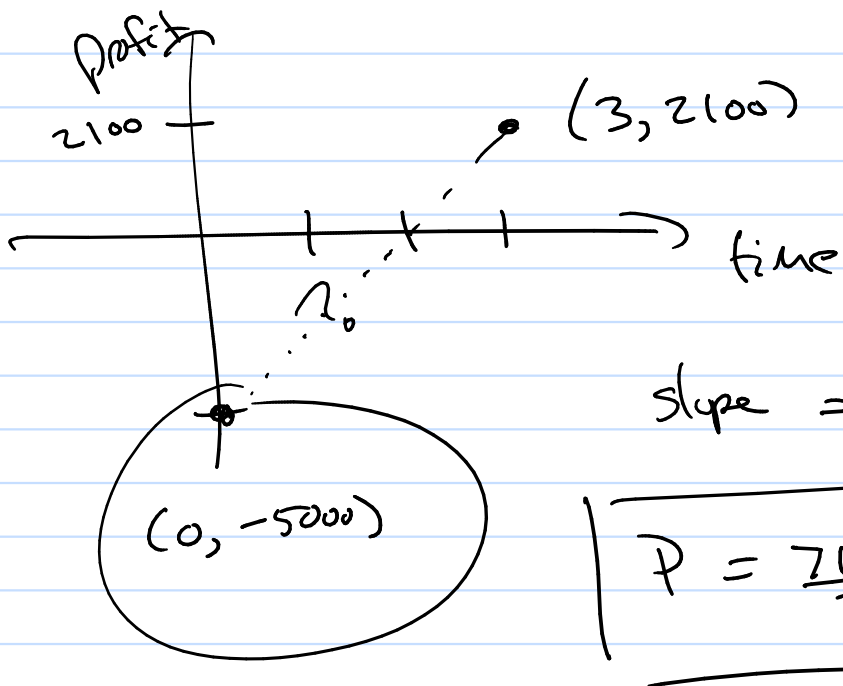 profit
2100
(3, 2100)
time
?
slope =
(0, -5000)
P = 71